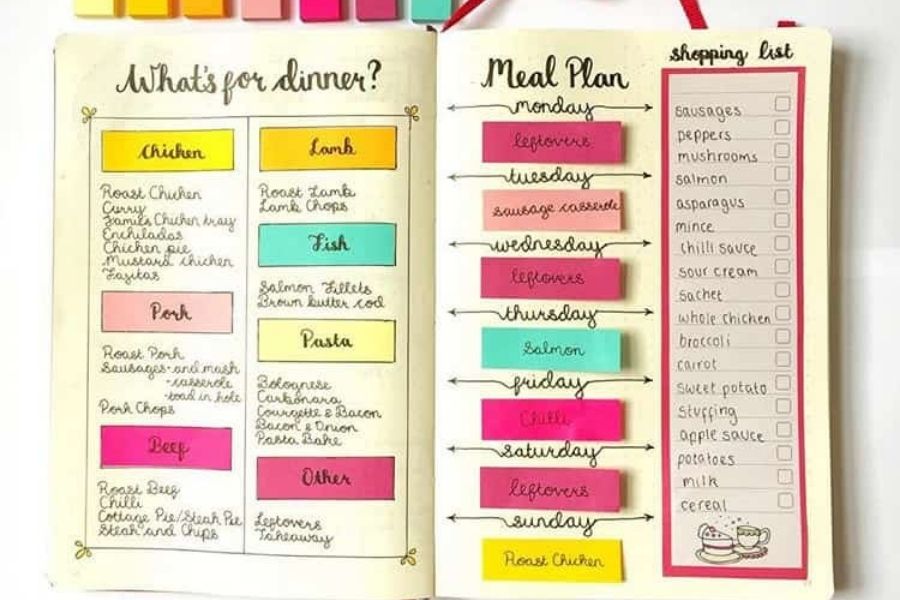 What's for dinner?
Chicken
Roast Chicken
Curry
Jamies Chicken tray
Enchiladas
Chicken pie
Mustard chicken
Fajitas
Pork
Roast Pork
Sausages - and mash
- casserole
- toad in hole
Pork Chops
Beef
Roast Beef
Chilli
Cottage Pie/Steak Pie
Steak and Chips
Lamb
Roast Lamb
Lamb Chops
Fish
Salmon Fillets
Brown butter cod
Pasta
Bolognese
Carbonara
Courgette & Bacon
Bacon & Onion
Pasta Bake
Other
Leftovers
Takeaway
Meal Plan
monday
leftovers
tuesday
sausage casserole
wednesday
leftovers
thursday
Salmon
friday
Chilli
saturday
leftovers
sunday
Roast Chicken
shopping list
sausages
peppers
mushrooms
salmon
asparagus
mince
chilli sauce
sour cream
sachet
whole chicken
broccoli
carrot
sweet potato
stuffing
apple sauce
potatoes
milk
cereal